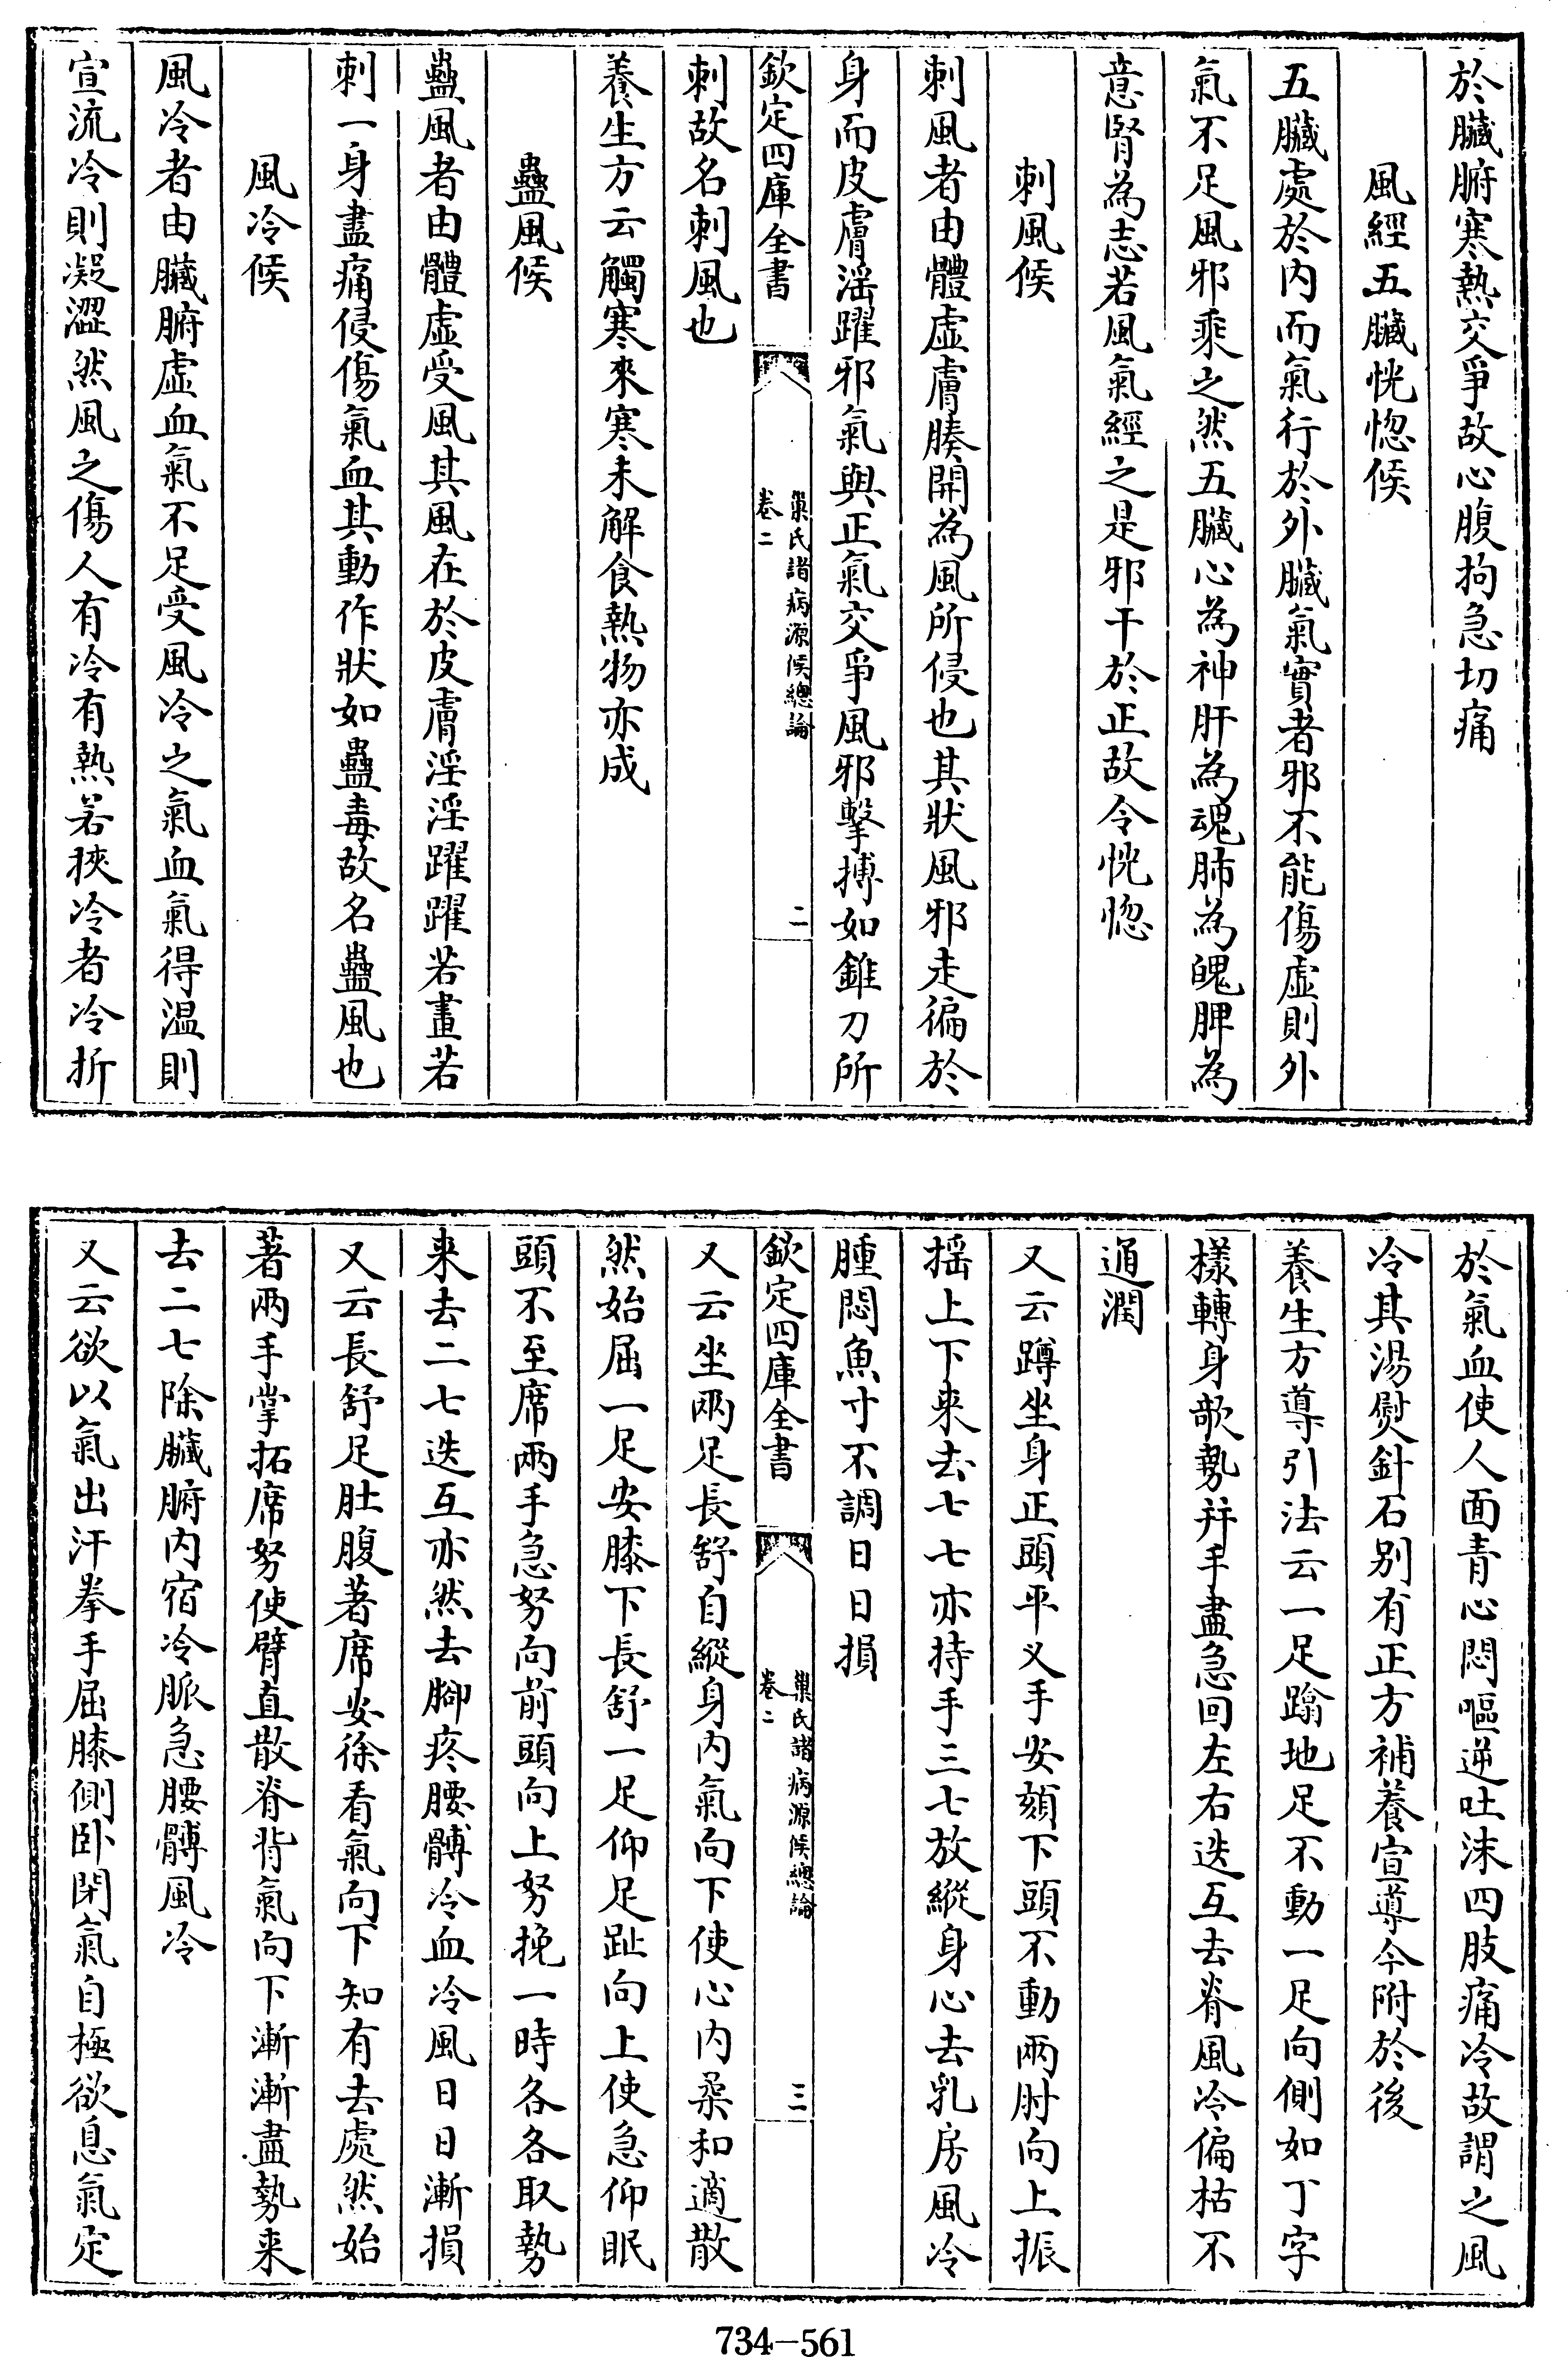 於臟腑寒熱交爭故心腹拘急切痛
風經五臟恍惚候
五臟處於内而氣行於外臟氣實者邪不能傷虚則外
氣不足風邪乘之然五臟心為神肝為魂肺為魄脾為
意腎為志若風氣經之是邪干於正故令恍惚
刺風候
刺風者由體虚膚腠開為風所侵也其狀風邪走徧於
身而皮膚淫躍邪氣與正氣交爭風邪擊搏如錐刀所
欽定四庫全書
巢氏諸病源候總論
卷二
二
刺故名刺風也
養生方云觸寒來寒未解食熱物亦成
蠱風候
蠱風者由體虚受風其風在於皮膚淫淫躍躍若畫若
刺一身盡痛侵傷氣血其動作狀如蠱毒故名蠱風也
風冷候
風冷者由臟腑虚血氣不足受風冷之氣血氣得温則
宣流冷則凝澀然風之傷人有冷有熱若挾冷者冷折
於氣血使人面青心悶嘔逆吐沫四肢痛冷故謂之風
冷其湯熨針石别有正方補養宣導今附於後
養生方導引法云一足蹹地足不動一足向側如丁字
様轉身欹勢并手盡急回左右迭互去脊風冷偏枯不
通潤
又云蹲坐身正頭平义手安頦下頭不動兩肘向上振
揺上下來去七七亦持手三七放縱身心去乳房風冷
腫悶魚寸不調日日損
欽定四庫全書
巢氏諸病源候總論
卷二
三
又云坐兩足長舒自縱身内氣向下使心内柔和適散
然始屈一足安膝下長舒一足仰足趾向上使急仰眠
頭不至席兩手急努向前頭向上努挽一時各各取勢
來去二七迭互亦然去腳疼腰髆冷血冷風日日漸損
又云長舒足肚腹著席安徐看氣向下知有去處然始
著兩手掌拓席努使臂直散脊背氣向下漸漸盡勢来
去二七除臟腑内宿冷脈急腰髆風冷
又云欲以氣出汗拳手屈膝側卧閉氣自極欲息氣定
734-561